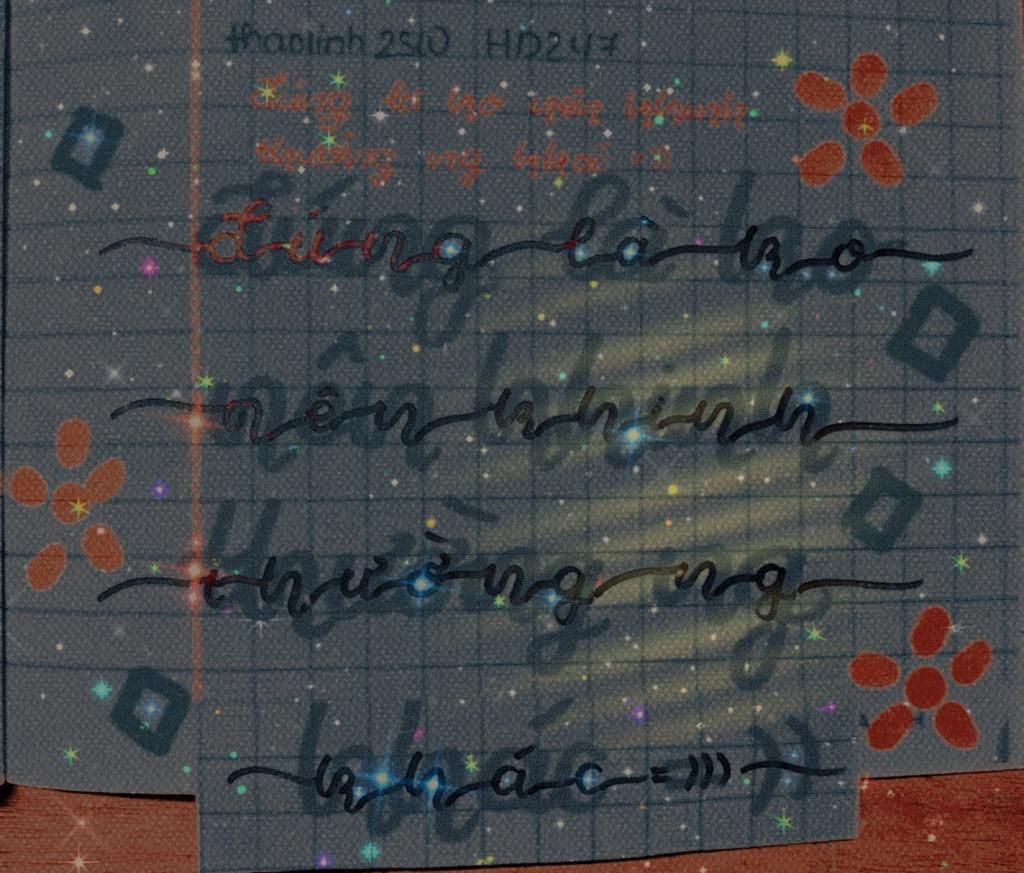 thaolinh 2510 HD247
đúng là ko nên khinh
thường ng khác =))
đúng là ko
nên khinh
thường ng
khác =)))